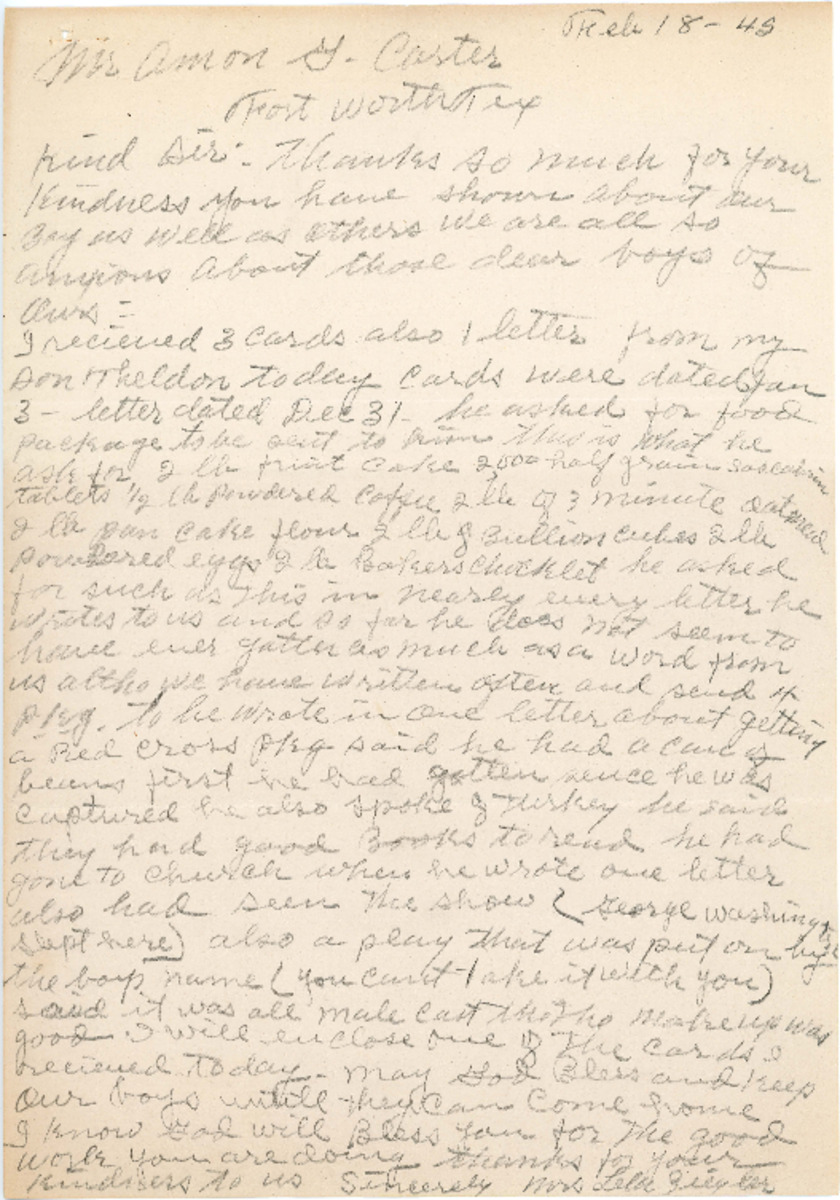 Feb 18-45
Mr Amon G. Carter
Fort Worth Tex
Kind Sir:- Thanks so much for your
kindness you have shown about our
Boy as well as others we are all so
anxious about those dear boys of
ours-
I recieved 3 cards also 1 letter from my
son Sheldon today cards were dated Jan
3- letter dated Dec 31- he asked for food
package to be sent to him this is what he
ask for 2 lb fruit cake 2,000 half grain
tablets 1/2 lb powdered coffee 2 lb of 3 minute oatmeal
2 lb pan cake flour 2 lb of Bullion cubes 2 lb
powdered eggs 2 lb Bakers chocklet he asked
for such as this in nearly every letter he
writes to us and so far he does not seem to
have ever gotten as much as a word from
us altho we have written often and send 4
pkg. to he wrote in one letter about getting
a Red cross pkg said he had a can of
beans first he had gotten sence he was
captured he also spoke of Turkey he said
they had good Books to read he had
gone to church when he wrote one letter
also had seen the show (George Washington
slept here) also a play that was put on by
the boys name (you cant take it with you)
said it was all male cast tho the make up was
good. I will enclose one of the cards I
recieved today- may God Bless and keep
our boys untill they can come home
I know God will Bless you for the good
work you are doing thanks for your
kindness to us Sincerely Mrs